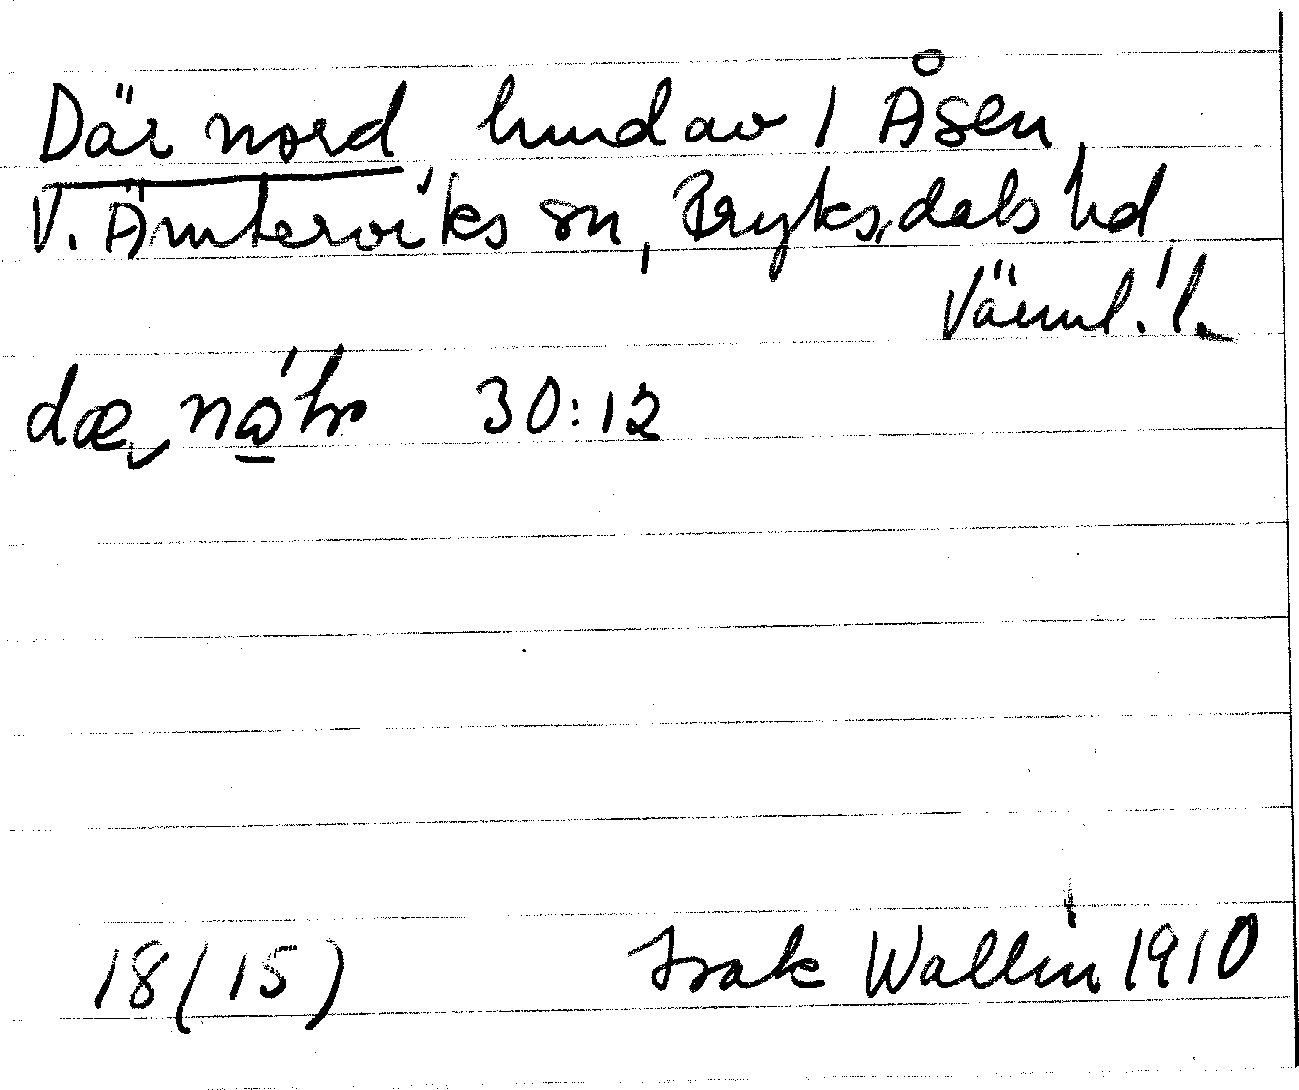 Där nord, hmd av 1 Åsen,
V. Ämterviks sn, Fryksdals hd
Värml. l.
30:12
18(15) Isak Wallin 1910